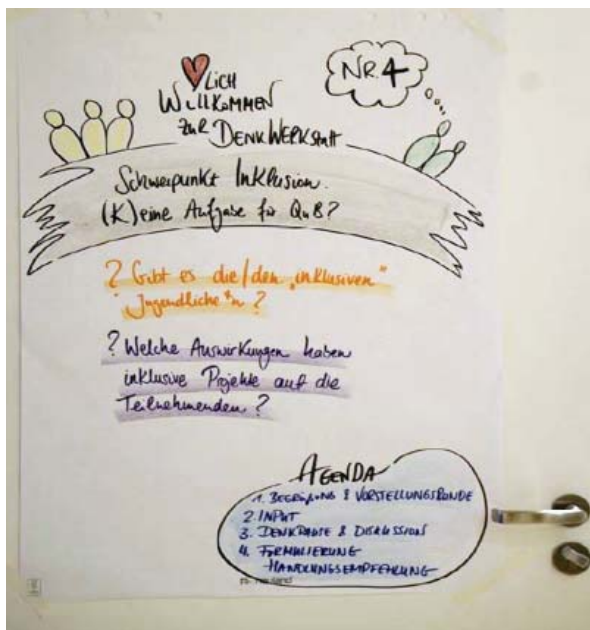 LICH
WILLKOMMEN
ZUR DENKWERKSTATT
NR. 4
Schwerpunkt Inklusion.
(K)eine Aufgabe für QuB?
? Gibt es die/den „inklusiven“
Jugendliche*n?
? Welche Auswirkungen haben
inklusive Projekte auf die
Teilnehmenden?
AGENDA
1. BEGRÜßUNG & VORSTELLUNGSRUNDE
2. INPUT
3. DENKPAUSE & DISKUSSION
4. FORMULIERUNG
HANDLUNGSEMPFEHLUNG